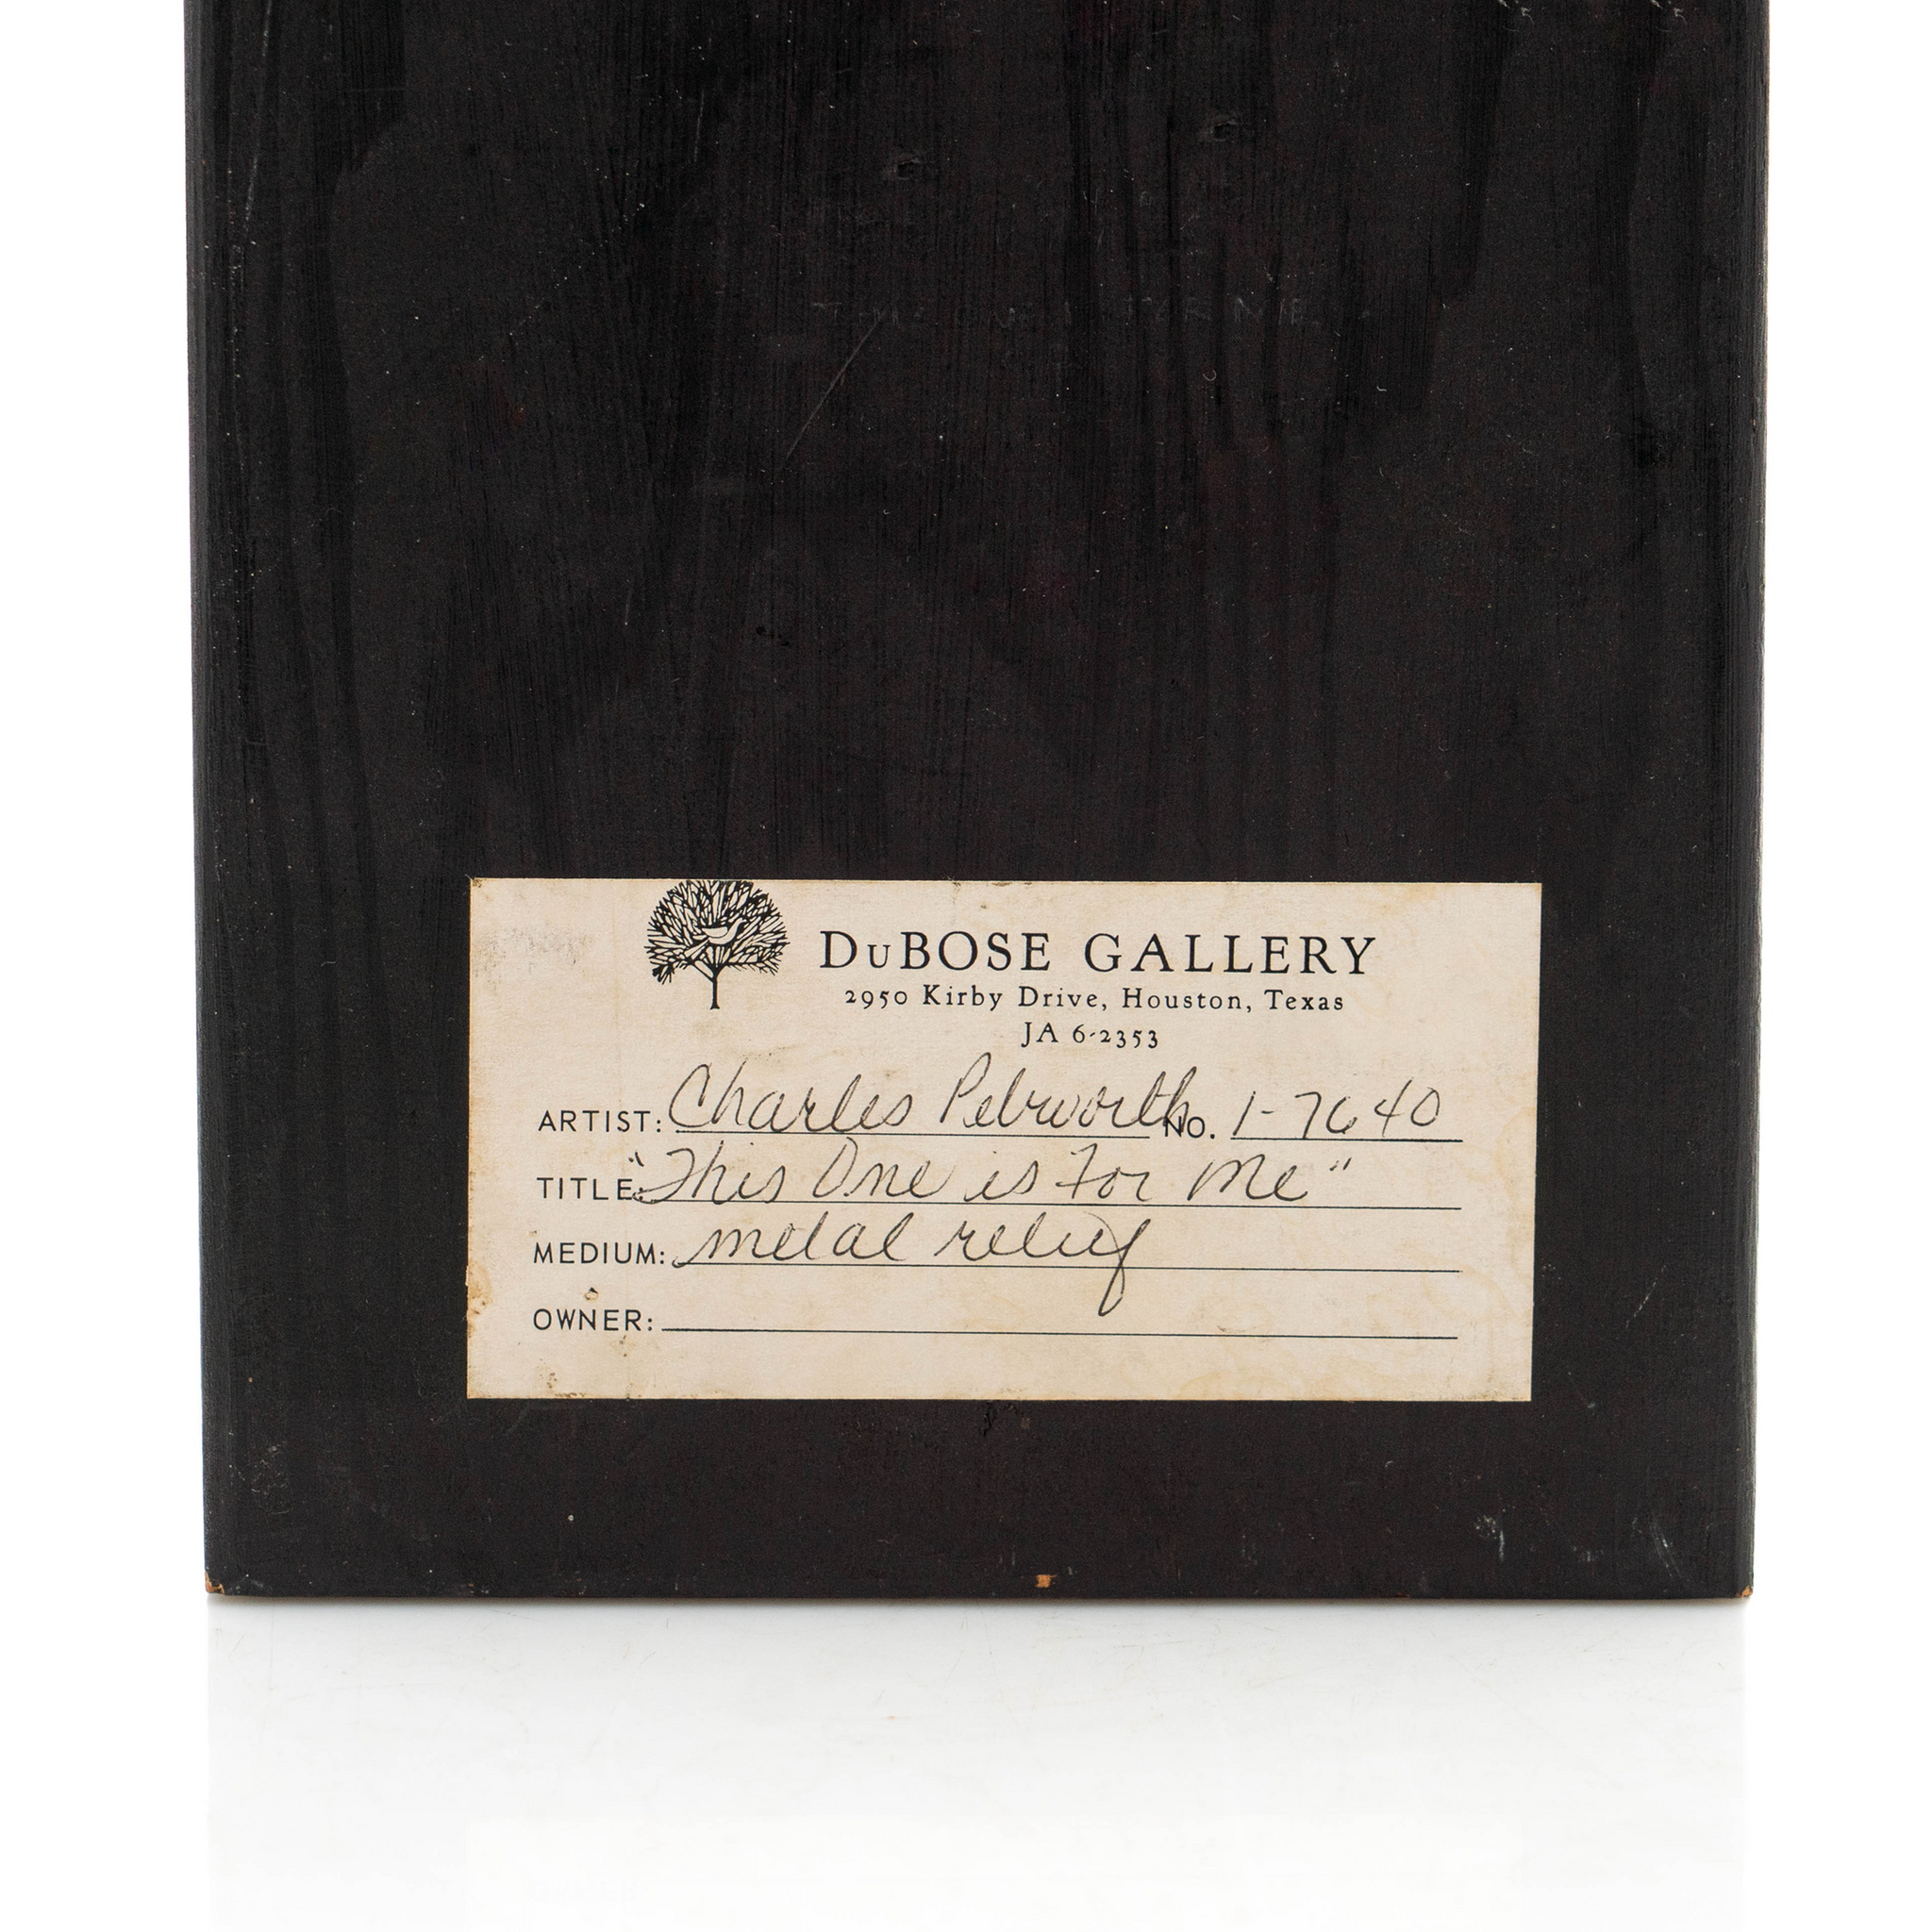 THIS ONE IS FOR ME
DuBOSE GALLERY
2950 Kirby Drive, Houston, Texas
JA 6-2353
ARTIST: Charles Pebworth NO. 1-7640
TITLE: "This One is For Me"
MEDIUM: metal relief
OWNER: